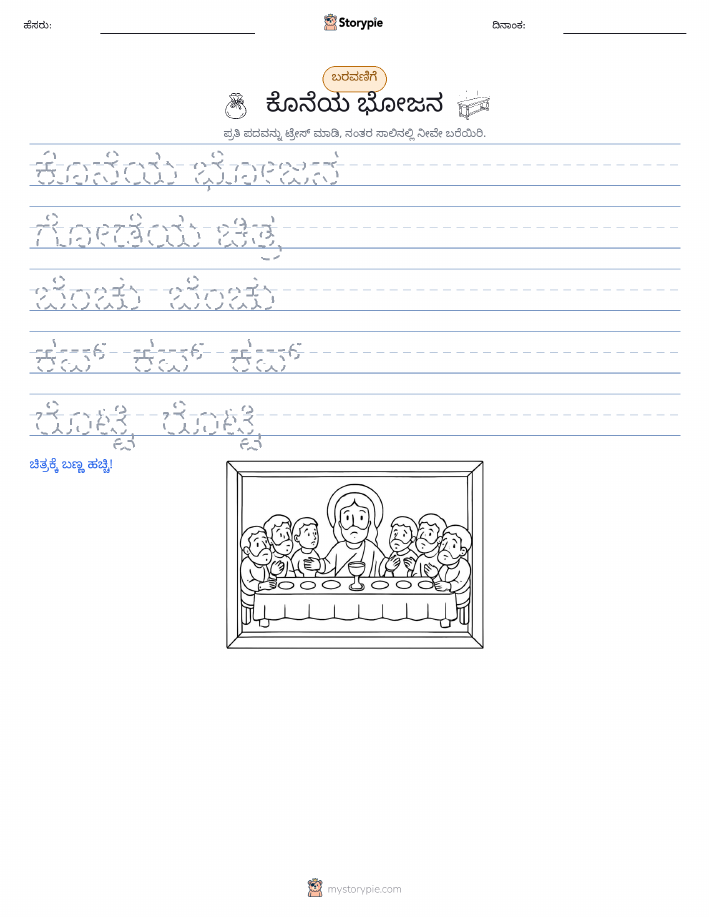 ಹೆಸರು:
Storypie
ದಿನಾಂಕ:
ಬರವಣಿಗೆ
ಕೊನೆಯ ಭೋಜನ
ಪ್ರತಿ ಪದವನ್ನು ಟ್ರೇಸ್ ಮಾಡಿ, ನಂತರ ಸಾಲಿನಲ್ಲಿ ನೀವೇ ಬರೆಯಿರಿ.
ಕೊನೆಯ ಭೋಜನ
ಗೋಡೆಯ ಚಿತ್ರ
ಬೆಂಚು ಬೆಂಚು
ಕಪ್ ಕಪ್ ಕಪ್
ರೊಟ್ಟಿ ರೊಟ್ಟಿ
ಚಿತ್ರಕ್ಕೆ ಬಣ್ಣ ಹಚ್ಚಿ!
mystorypie.com